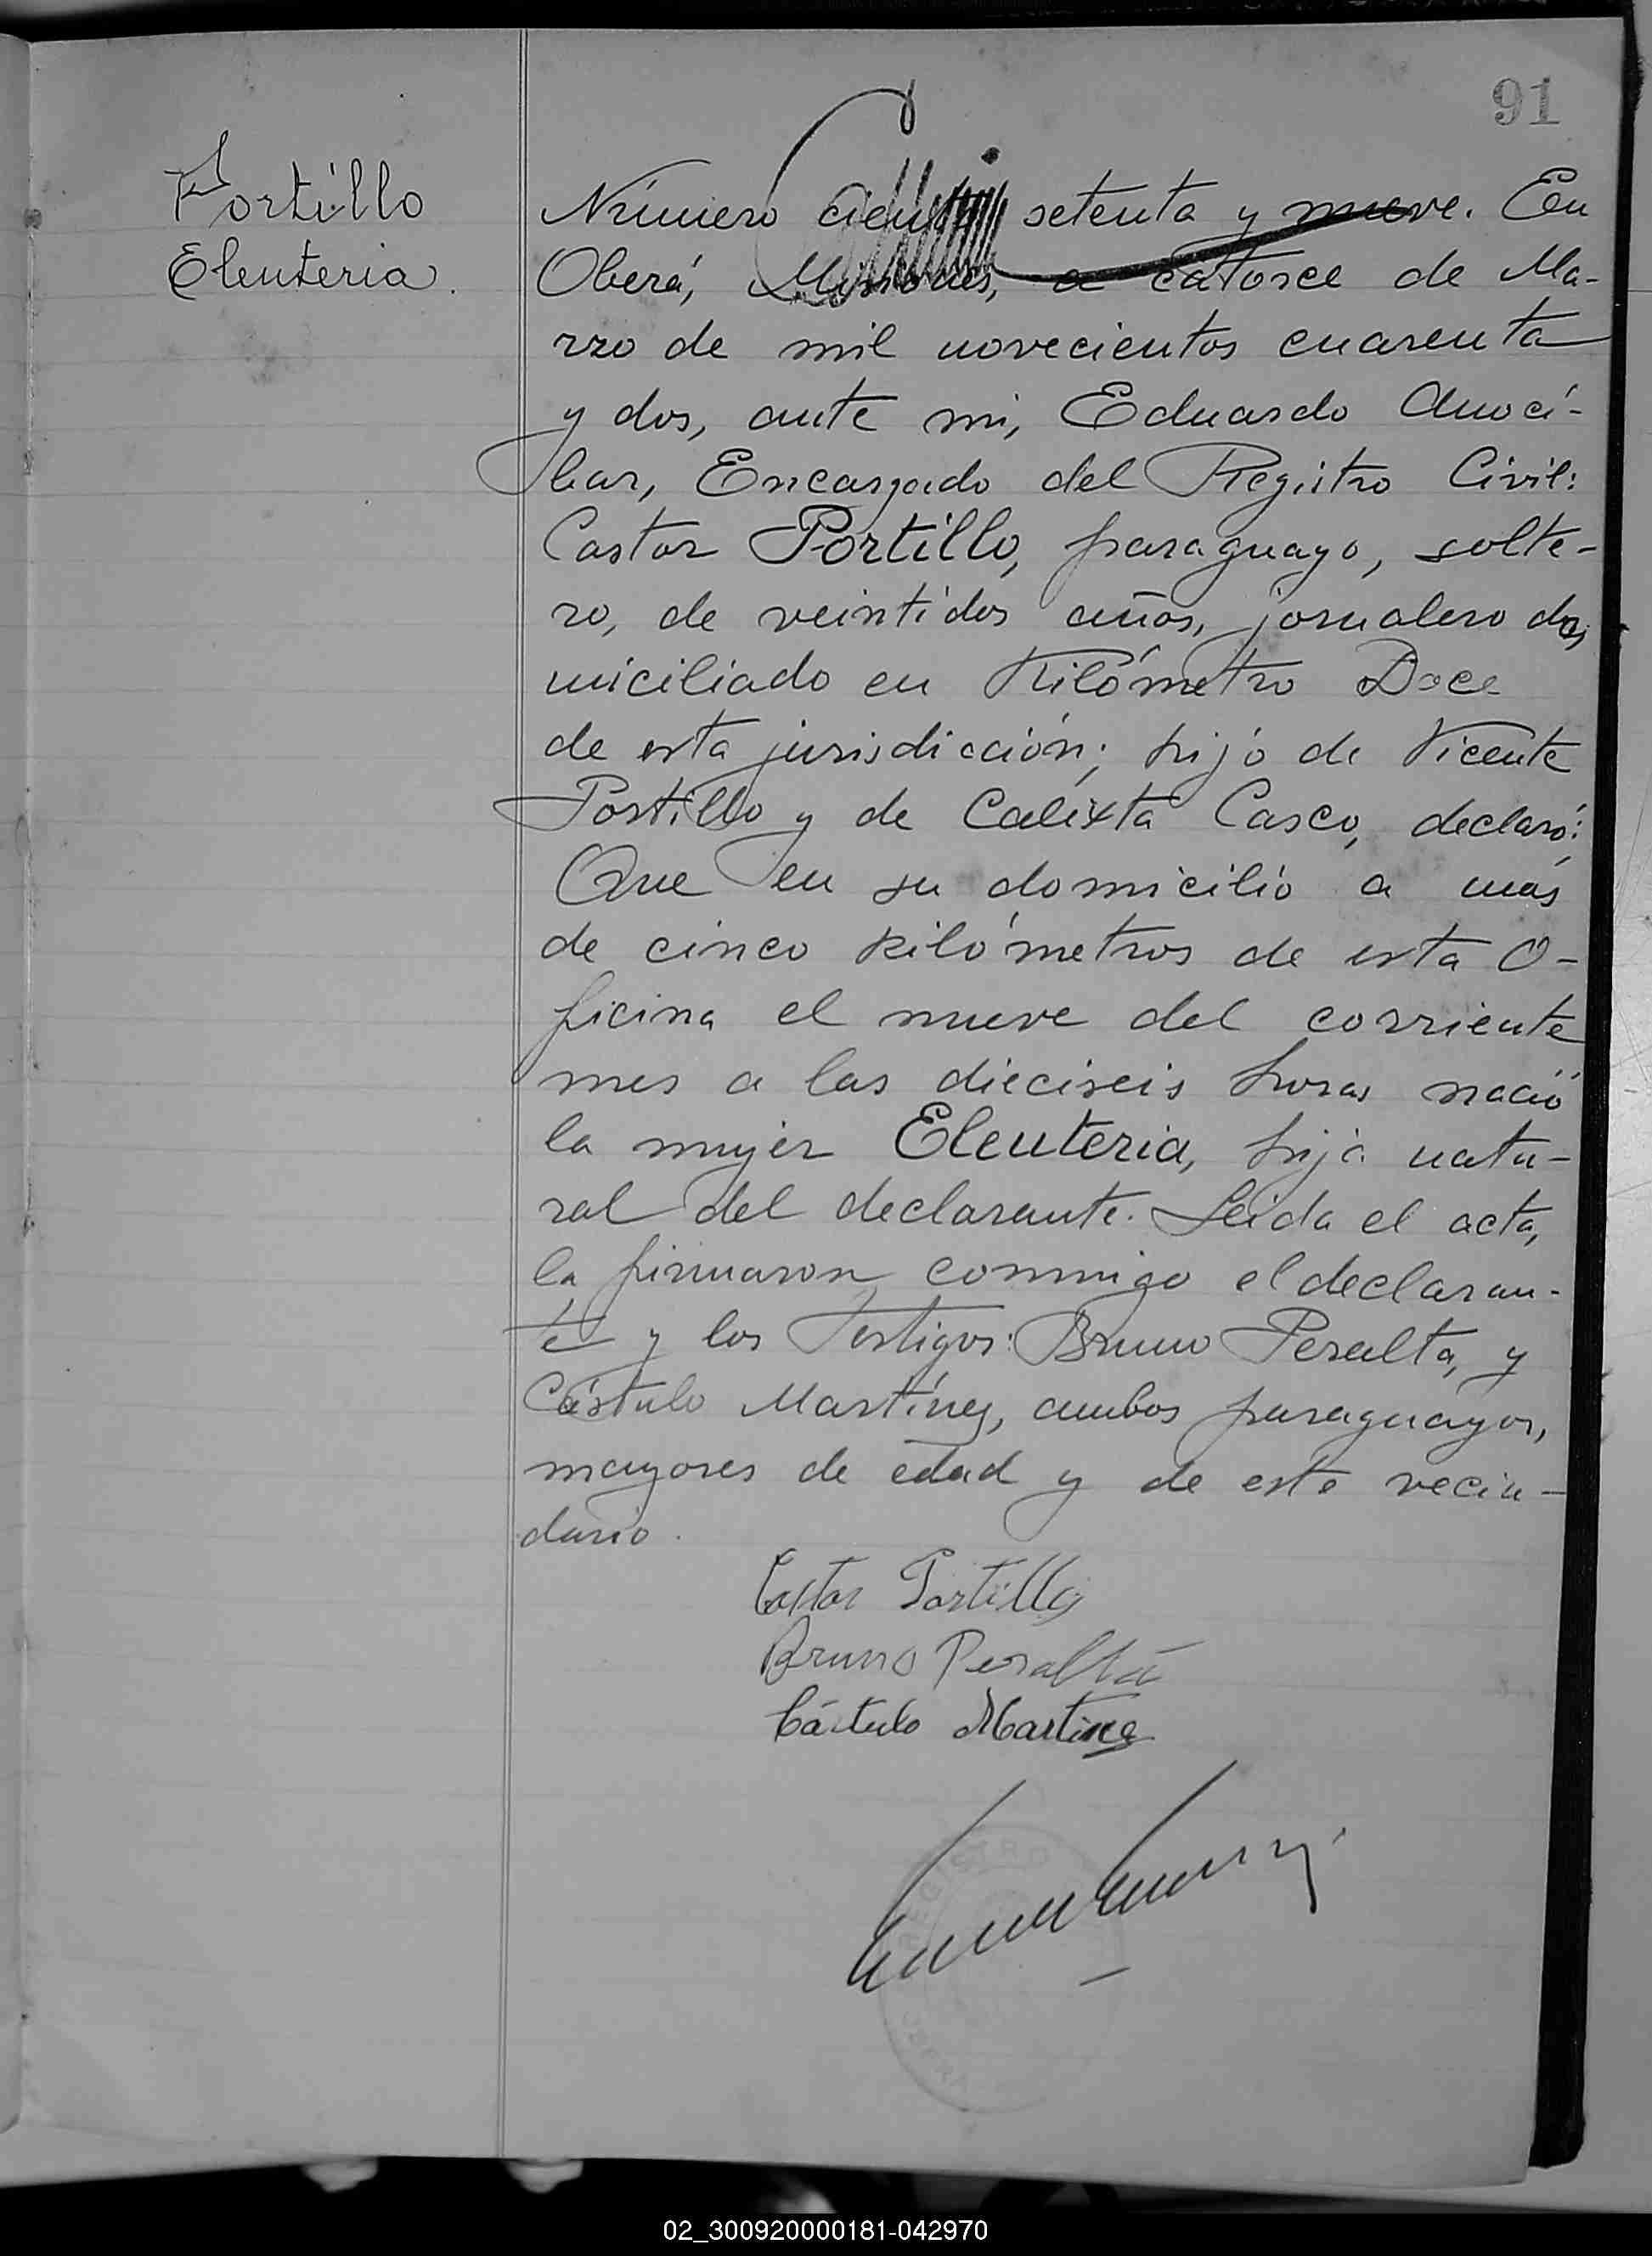 91
Portillo
Eleuteria.
Número ciento setenta y nueve. En
Oberá, Misiones, a catorce de Ma-
rzo de mil novecientos cuarenta
y dos, ante mi, Eduardo Anocí-
bar, Encargado del Registro Civil:
Castor Portillo, paraguayo, solte-
ro, de veintidos años, jornalero do,
miciliado en Kilómetro Doce
de esta jurisdicción; hijo de Vicente
Portillo y de Calixta Casco, declaró:
Que en su domicilio a más
de cinco kilómetros de esta O-
ficina el nueve del corriente
mes a las dieciseis horas nació
la mujer Eleuteria, hija natu-
ral del declarante. Leida el acta,
la firmaron conmigo el declaran-
te y los Testigos: Bruno Peralta, y
Cástulo Martínez, ambos paraguayos,
mayores de edad y de este vecin-
dario.
Castor Portillo
Bruno Peralta
Cástulo Martinez
02_300920000181-042970